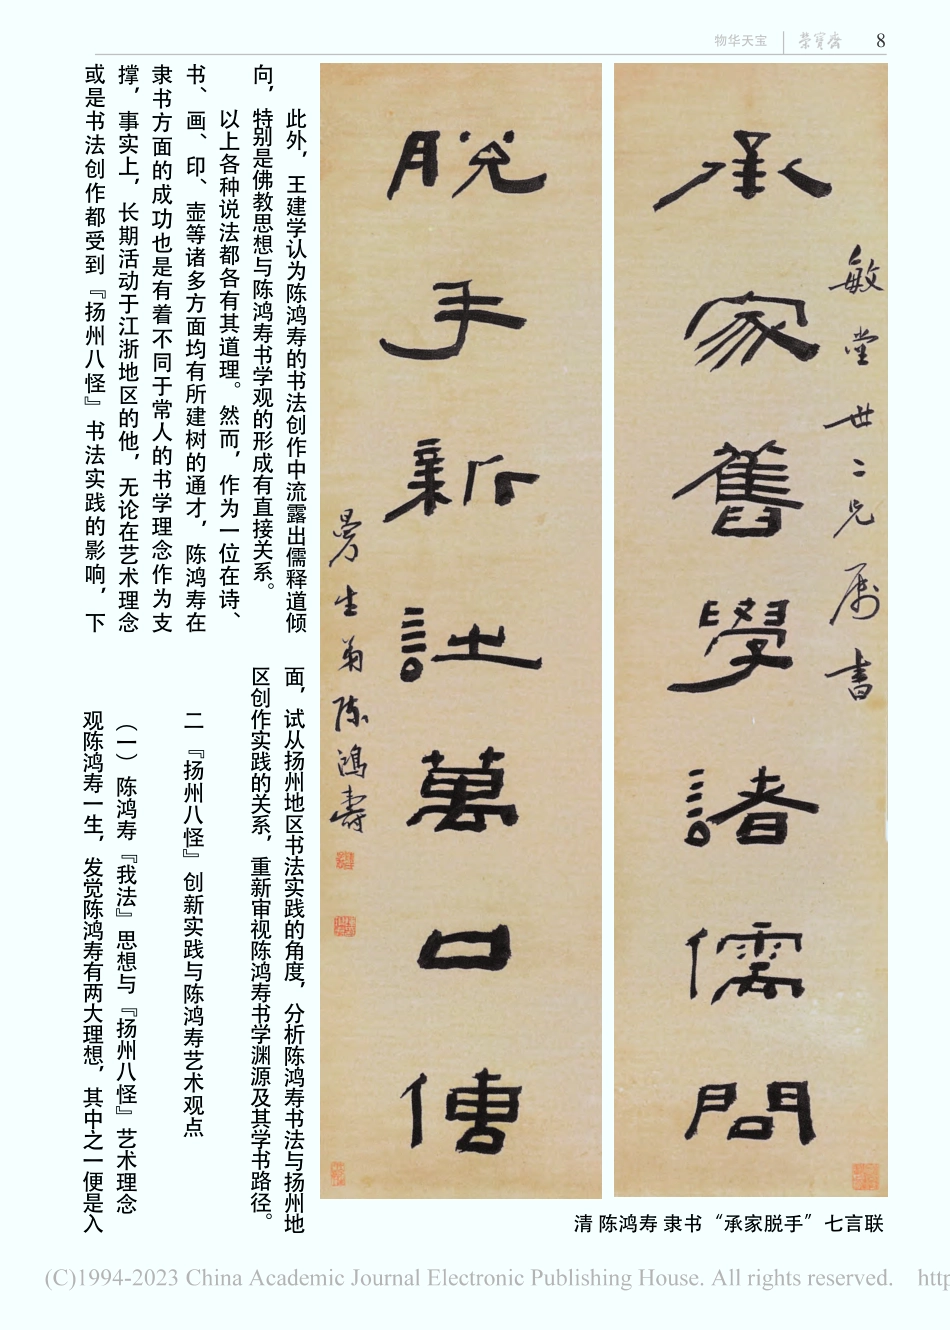 物华天宝
荣宝斋
8
承家舊學諸儒問
敏堂廿二兄属书
脱手新詩萬口傳
曼生弟陈鸿寿
清 陈鸿寿 隶书“承家脱手”七言联
此外，王建学认为陈鸿寿的书法创作中流露出儒释道倾
向，特别是佛教思想与陈鸿寿书学观的形成有直接关系。
以上各种说法都各有其道理。然而，作为一位在诗、
书、画、印、壶等诸多方面均有所建树的通才，陈鸿寿在
隶书方面的成功也是有着不同于常人的书学理念作为支
撑，事实上，长期活动于江浙地区的他，无论在艺术理念
或是书法创作都受到『扬州八怪』书法实践的影响，下
面，试从扬州地区书法实践的角度，分析陈鸿寿书法与扬州地
区创作实践的关系，重新审视陈鸿寿书学渊源及其学书路径。
二 『扬州八怪』创新实践与陈鸿寿艺术观点
（一）陈鸿寿『我法』思想与『扬州八怪』艺术理念
观陈鸿寿一生，发觉陈鸿寿有两大理想，其中之一便是入
(C)1994-2023 China Academic Journal Electronic Publishing House. All rights reserved. http